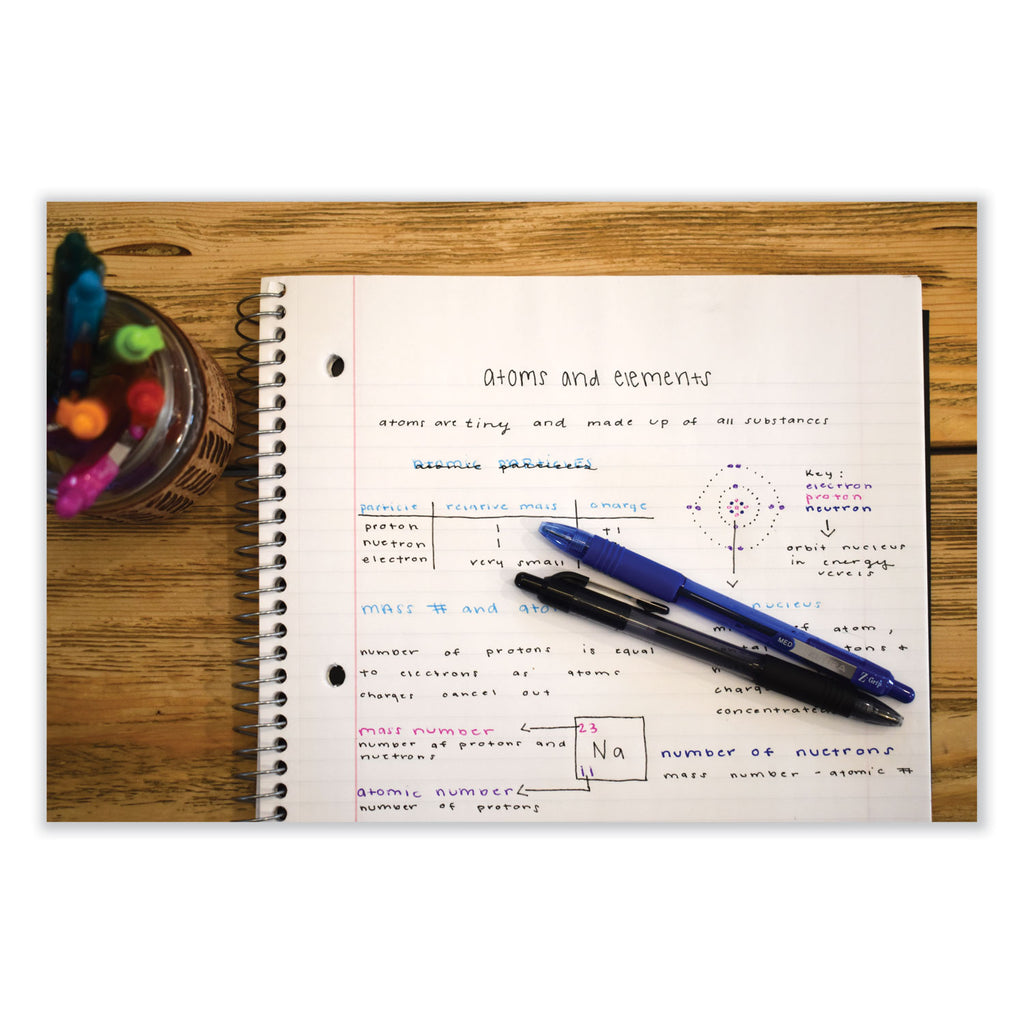 atoms and elements
atoms are tiny and made up of all substances
atomic particles
particle relative mass charge
proton 1 +1
nuetron 1
electron very small
Key:
electron
proton
neutron
orbit nucleus
in energy
MASS # and
nucleus
of atom,
number of protons is equal
to electrons as atoms
charges cancel out
concentrated
mass number
number of protons and
nuetrons
23
Na
11
atomic number
number of protons
number of nuetrons
mass number - atomic #
MED
Z Grip